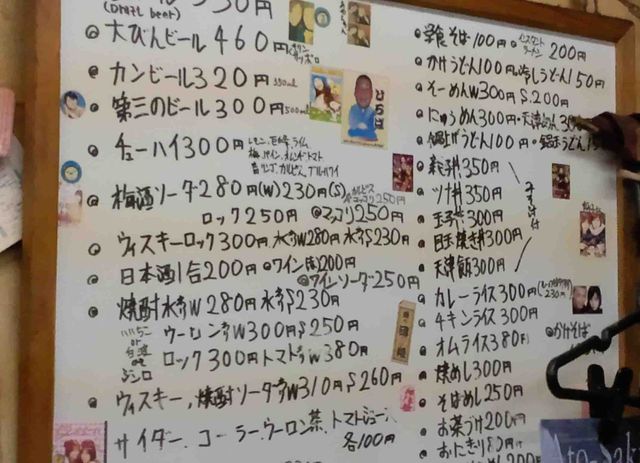 (Draft beer)
大びんビール460円
カンビール320円 350ml
第三のビール300円 500ml
チューハイ300円
レモン、巨峰、ライム
梅酒ソーダ280円(W)230円(S)
ロック250円 マッコリ250円
ウィスキーロック300円 水割W280円 水割S230円
日本酒1合200円 ワイン1杯200円
ワインソーダ250円
焼酎水割W280円 水割S230円
ウーロン割W300円 S250円
ロック300円 トマト割W380円
ウィスキー、焼酎ソーダ割W310円 S260円
サイダー、コーラ、ウーロン茶、トマトジュース、
各100円
そば100円 インスタントラーメン200円
かけうどん100円 冷しうどん150円
そーめんW300円 S.200円
にゅうめん300円
鍋焼うどん100円
ひらぱ
親子丼350円
ツナ丼350円
玉子丼300円
目玉焼き丼300円
天津飯300円
みそ汁付
カレーライス300円
230円
チキンライス300円
かけそば
オムライス380円
焼めし300円
そばめし250円
お茶づけ200円
おにぎり80円
Ato-Sak